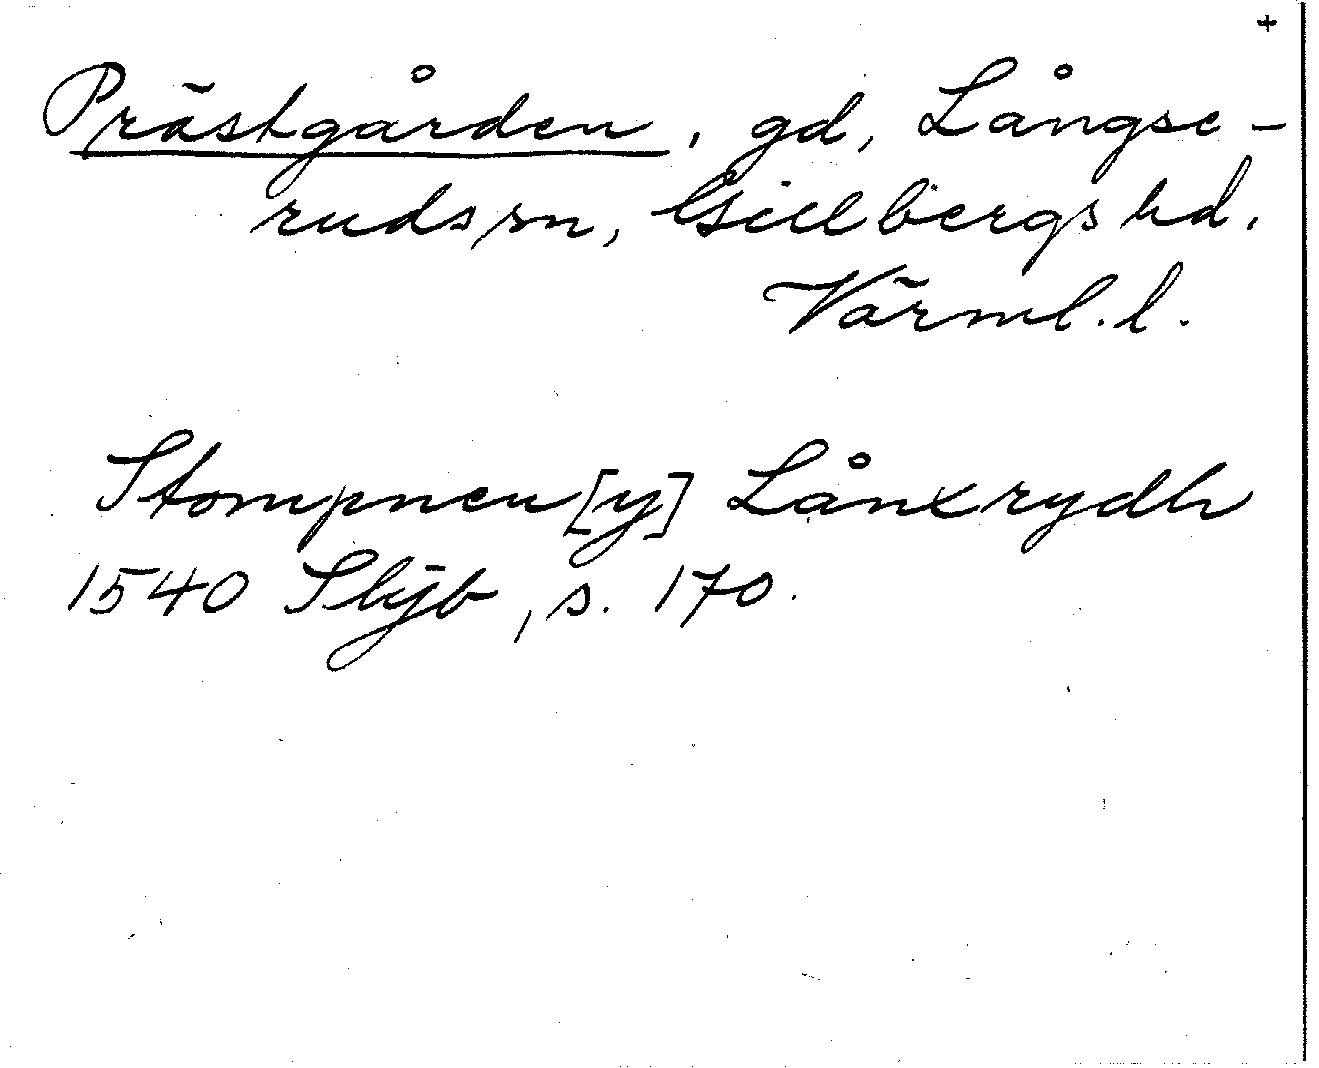 +
Prästgården, gd, Långse-
ruds sn, Gillbergs hd.
Värml. l.
Stompnen [y] Lånxrydh
1540 Skjb, s. 170.